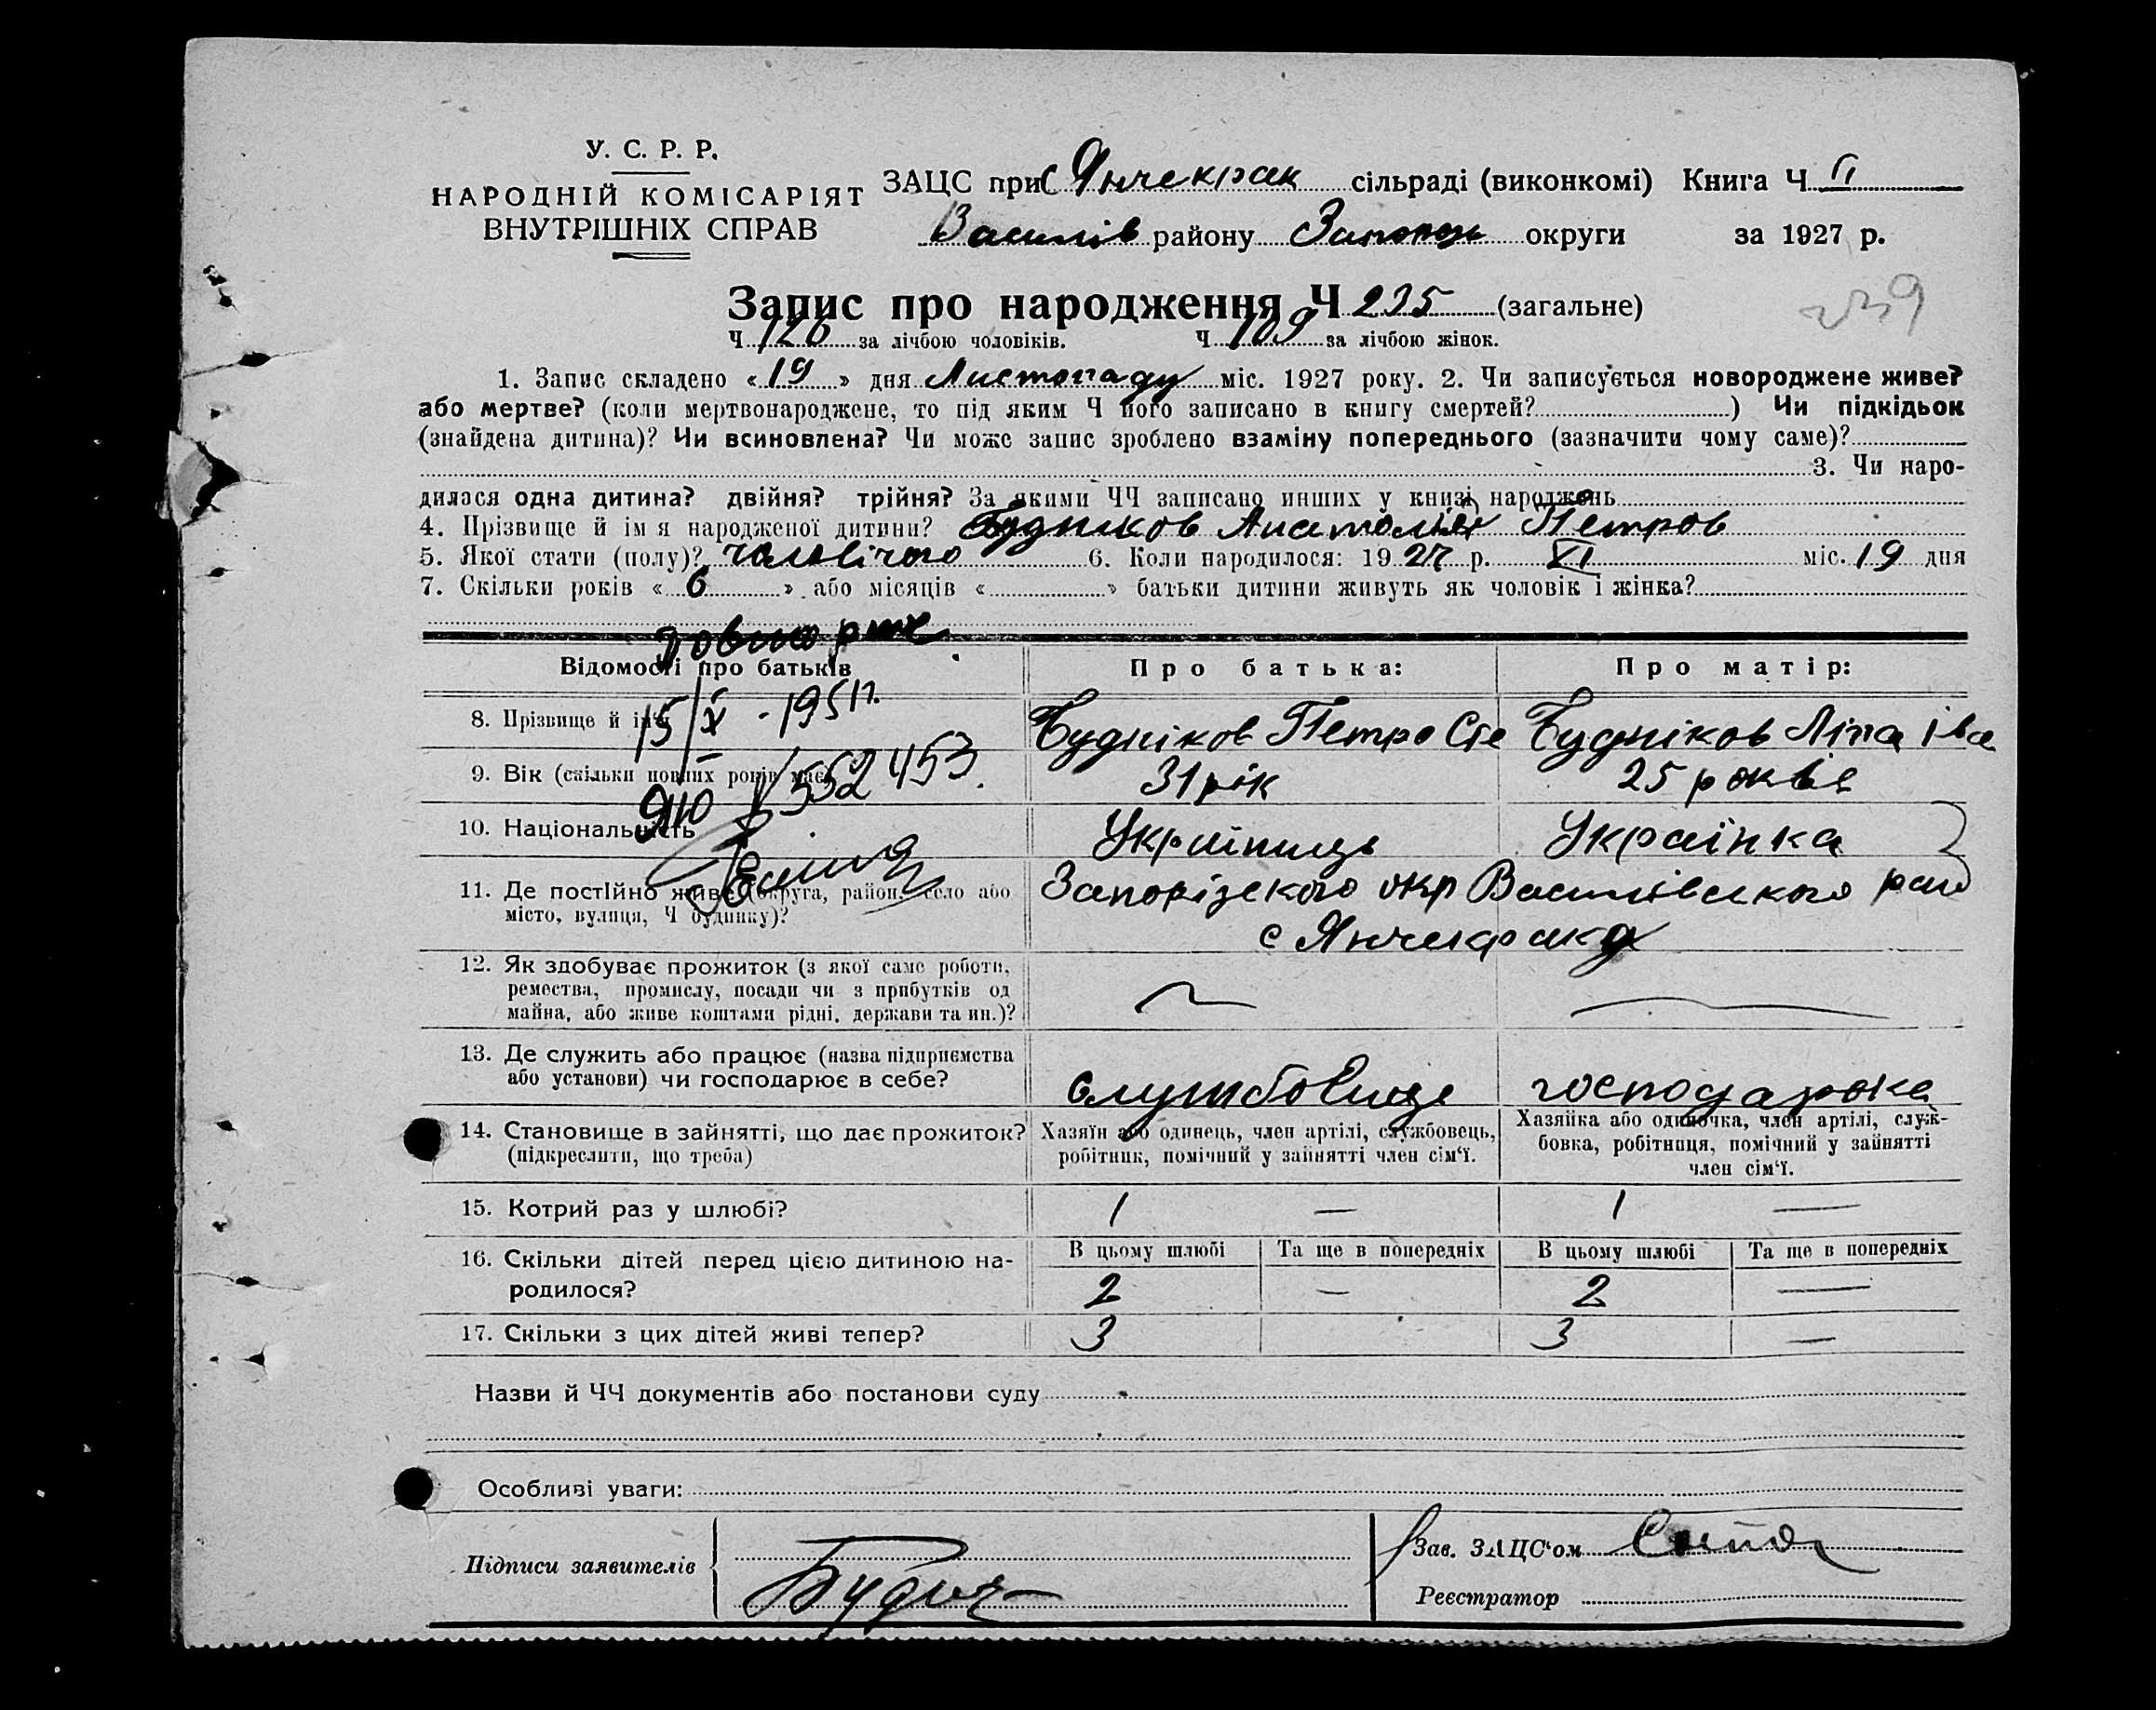 У. С. Р. Р.
НАРОДНІЙ КОМІСАРІЯТ
ВНУТРІШНІХ СПРАВ
ЗАЦС при С Янчекрак сільраді (виконкомі) Книга Ч II
Василів району Запоріз округи за 1927 р.
Запис про народження Ч 235 (загальне)
239
Ч 126 за лічбою чоловіків. Ч 109 за лічбою жінок.
1. Запис складено «19» дня Листопаду міс. 1927 року. 2. Чи записується новороджене живе?
або мертве? (коли мертвонароджене, то під яким Ч його записано в книгу смертей? ) Чи підкідьок
(знайдена дитина)? Чи всиновлена? Чи може запис зроблено взаміну попереднього (зазначити чому саме)?
3. Чи наро-
дилася одна дитина? двійня? трійня? За якими ЧЧ записано инших у книзі народжень
4. Прізвище й ім я народженої дитини? Будніков Анатолій Петров
5. Якої стати (полу)? чоловічого 6. Коли народилося: 1927 р. XI міс. 19 дня
7. Скільки років «6» або місяців « » батьки дитини живуть як чоловік і жінка?
Відомості про батьків Про батька: Про матір:
15/X - 1951г.
552453
8. Прізвище й ім'я Будніков Петро Сте Будніков Ліпа Іва
9. Вік (скільки повних років має) 31 рік 25 років
10. Національність Українець Українка
11. Де постійно живе (округа, район, село або
місто, вулиця, Ч будинку)? Запорізского окр Василівского рай
с Янчекрака
12. Як здобуває прожиток (з якої саме роботи,
ремества, промислу, посади чи з прибутків од
майна, або живе коштами рідні, держави та ин.)?
13. Де служить або працює (назва підприємства
або установи) чи господарює в себе? службовець господарка
14. Становище в зайнятті, що дає прожиток?
(підкреслити, що треба)
Хазяїн або одинець, член артілі, службовець,
робітник, помічний у зайнятті член сім'ї.
Хазяйка або одиночка, член артілі, служ-
бовка, робітниця, помічний у зайнятті
член сім'ї.
15. Котрий раз у шлюбі? 1 — 1 —
16. Скільки дітей перед цією дитиною на-
родилося?
В цьому шлюбі Та ще в попередніх В цьому шлюбі Та ще в попередніх
2 — 2 —
17. Скільки з цих дітей живі тепер? 3 3 —
Назви й ЧЧ документів або постанови суду
Особливі уваги:
Підписи заявителів
Зав. ЗАЦС'ом
Реєстратор